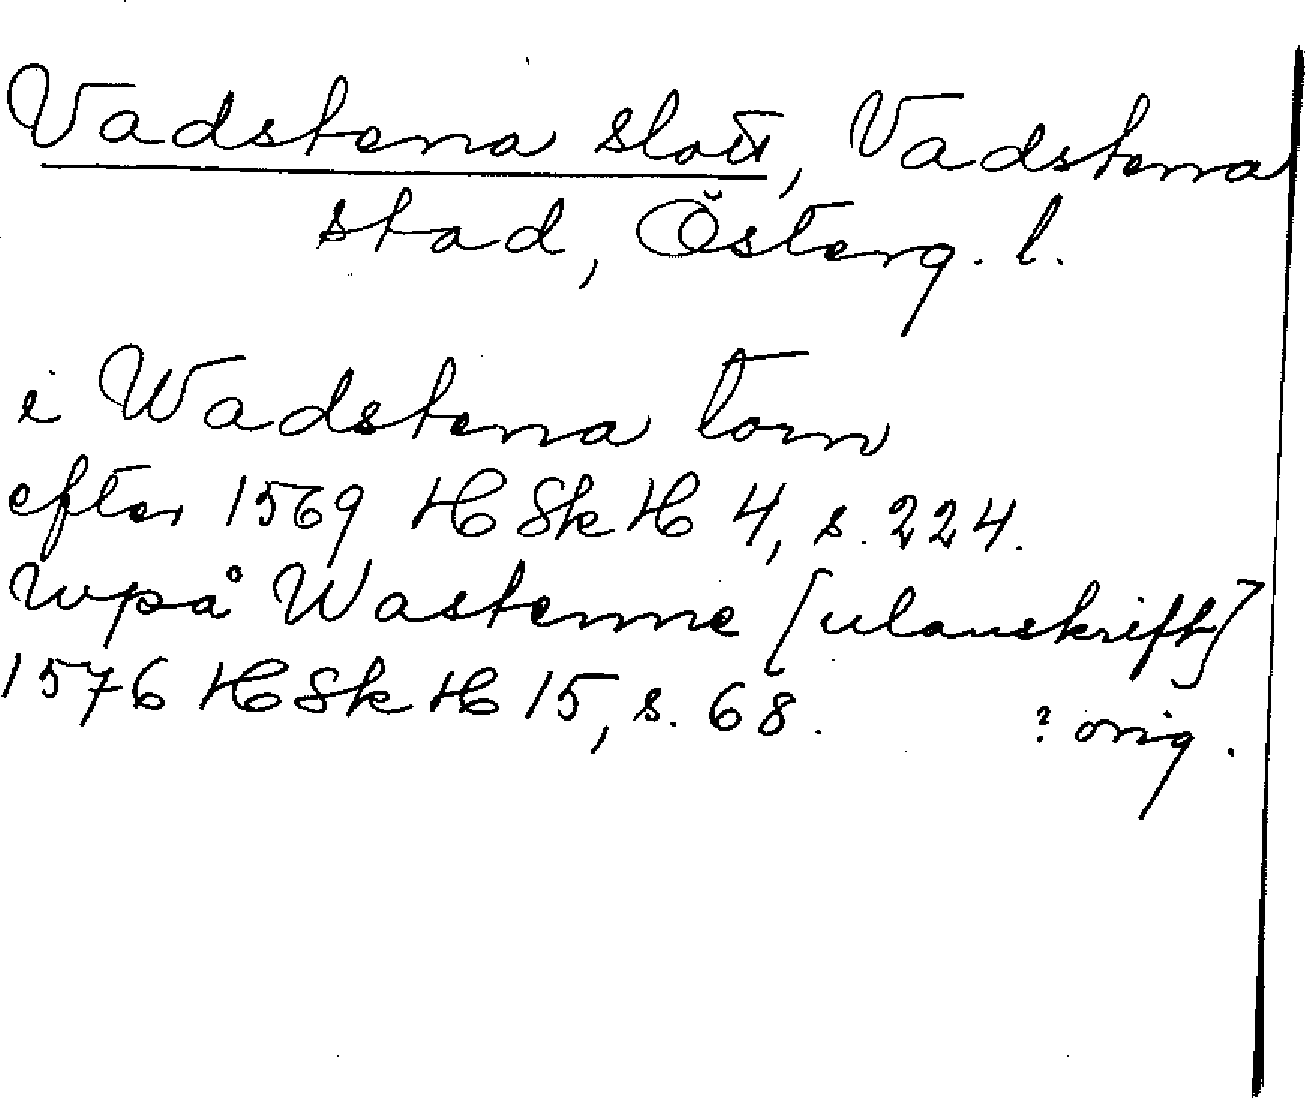 Vadstena slott, Vadstena
stad, Österg. l.
i Wadstena torn
efter 1569 HSkH 4, s. 224.
wpå Wastenne [utanskrift]
1576 HSkH 15, s. 68. ? orig.